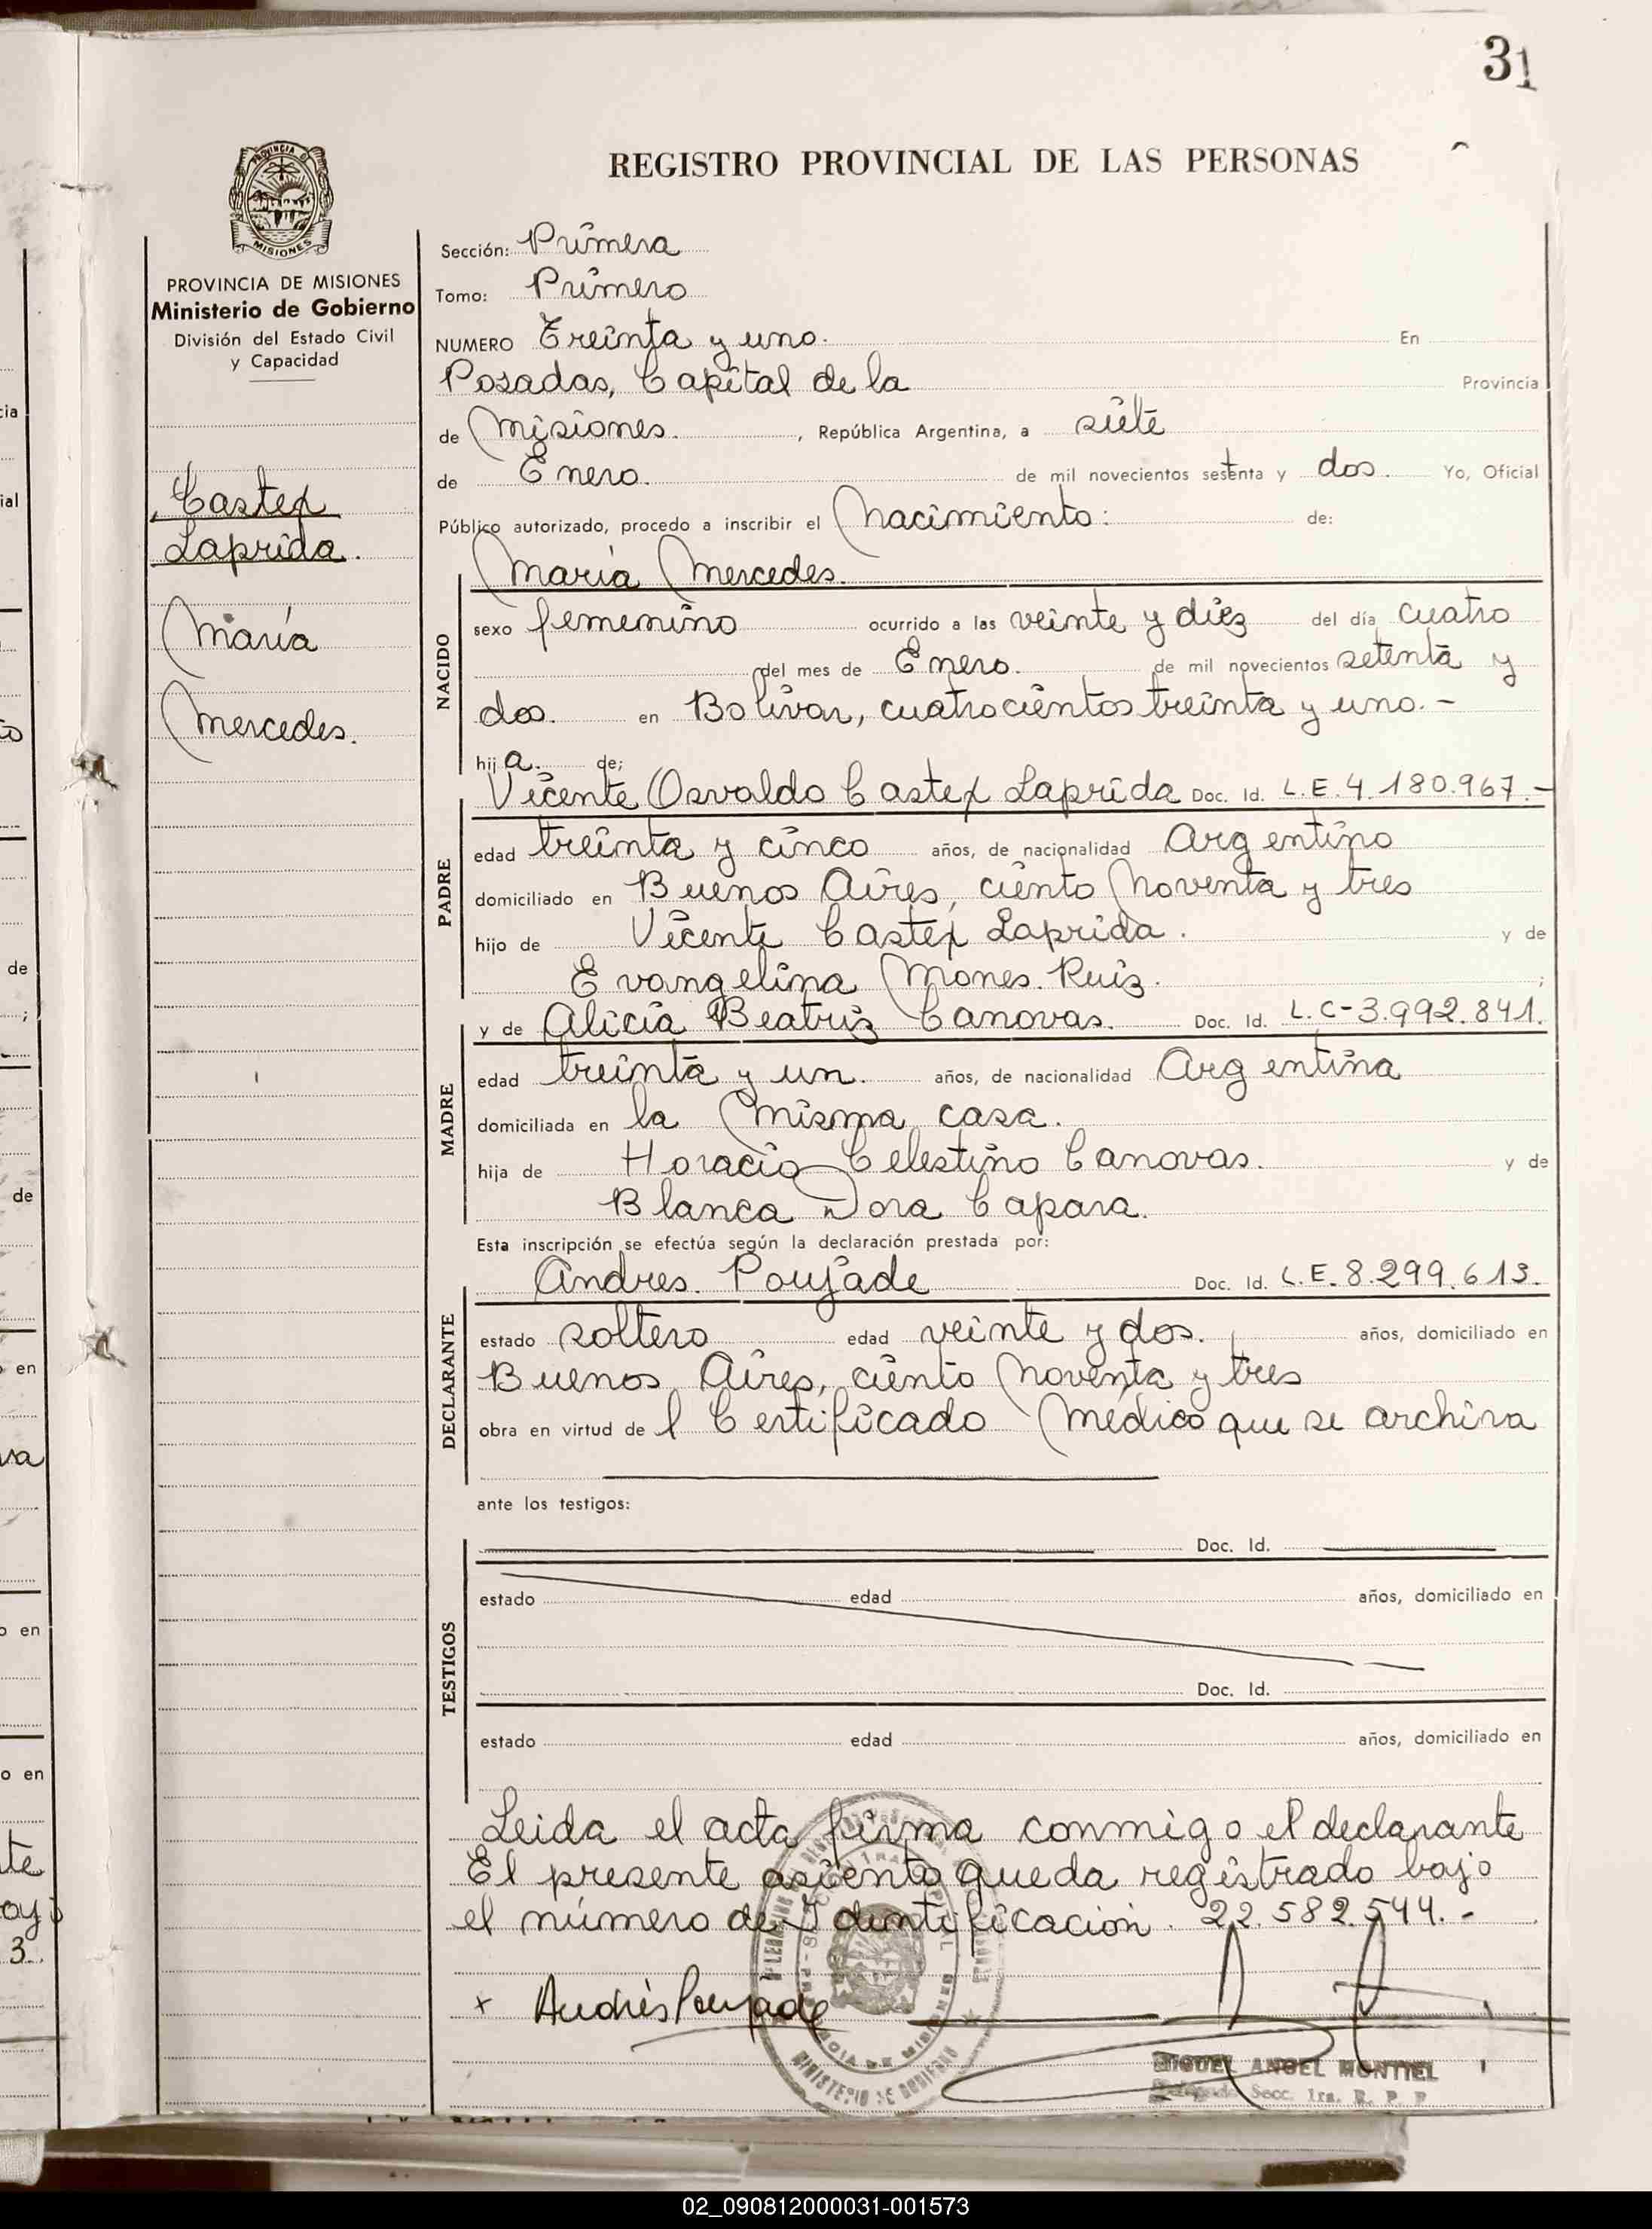 31
REGISTRO PROVINCIAL DE LAS PERSONAS
PROVINCIA DE MISIONES
Ministerio de Gobierno
División del Estado Civil
y Capacidad
Castex
Laprida.
María
Mercedes.
Sección: Primera
Tomo: Primero
NUMERO Treinta y uno. En
Posadas, Capital de la Provincia
de Misiones. , República Argentina, a siete
de Enero. de mil novecientos setenta y dos. Yo, Oficial
Público autorizado, procedo a inscribir el Nacimiento: de:
María Mercedes.
NACIDO
sexo femenino ocurrido a las veinte y diez del día cuatro
del mes de Enero. de mil novecientos setenta y
dos. en Bolivar, cuatrocientos treinta y uno.-
hij a. de;
Vicente Osvaldo Castex Laprida Doc. Id. L.E. 4.180.967.-
PADRE
edad treinta y cinco años, de nacionalidad Argentino
domiciliado en Buenos Aires, ciento noventa y tres
hijo de Vicente Castex Laprida. y de
Evangelina Mones. Ruiz. ;
y de Alicia Beatriz Canovas. Doc. Id. L.C-3.992.841.
MADRE
edad treinta y un. años, de nacionalidad Argentina
domiciliada en la misma casa.
hija de Horacio Celestino Canovas. y de
Blanca Dora Capara.
Esta inscripción se efectúa según la declaración prestada por:
Andres. Poujade Doc. Id. L.E. 8.299.613.
DECLARANTE
estado soltero edad veinte y dos. años, domiciliado en
Buenos Aires, ciento noventa y tres
obra en virtud de l Certificado Médico que se archiva
ante los testigos:
Doc. Id.
TESTIGOS
estado edad años, domiciliado en
Doc. Id.
estado edad años, domiciliado en
Leida el acta firma conmigo el declarante
El presente asiento queda registrado bajo
el número de Identificacion. 22.582.544.-
x Andrés Poujade
MIGUEL ANGEL MONTIEL
Secc. 1ra. R. P. P
02_090812000031-001573